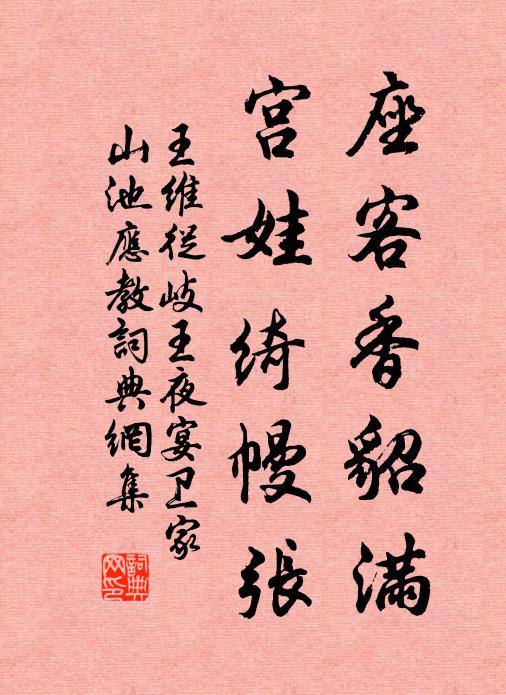 座客香貂满
宫娃绮幔張
王維從岐王夜宴卫家
山池應教詞典網集
詞典
网印